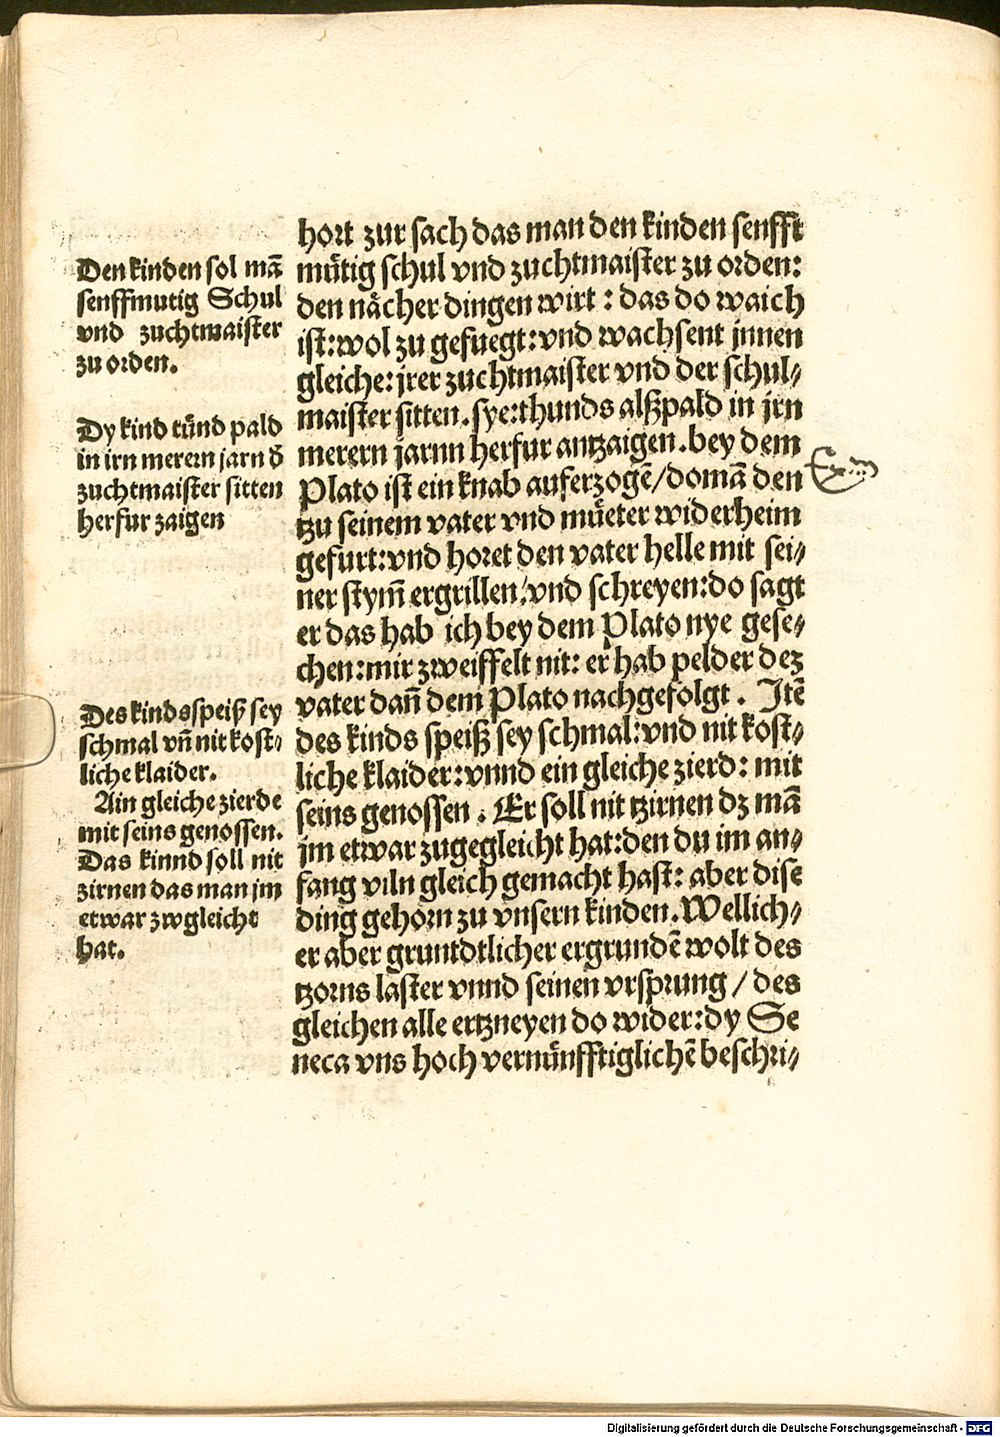 Den kinden sol mā
senffmutig Schul
vnd zuchtmaister
zu orden.
Dy kind tůnd pald
in irn merern jarn d̄
zuchtmaister sitten
herfur zaigen
Des kinds speiß sey
schmal vn̄ nit kost⸗
liche klaider.
Ain gleiche zierde
mit seins genossen.
Das kinnd soll nit
zirnen das man jm
etwar zwgleicht
hat.
hort zur sach das man den kinden senfft
mütig schul vnd zuchtmaister zu orden:
den nächer dingen wirt : das do waich
ist:wol zu gefuegt:vnd wachsent jnnen
gleiche: jrer zuchtmaister vnd der schul⸗
maister sitten. sye:thunds alßpald in jrn
merern jarnn herfur antzaigen. bey dem
Plato ist ein knab auferzogē/do mā den
tzu seinem vater vnd mueter widerheim
gefurt:vnd horet den vater helle mit sei⸗
ner stym̄ ergrillen/vnd schreyen:do sagt
er das hab ich bey dem Plato nye gese⸗
chen:mir zweiffelt nit: er hab pelder dez
vater dan̄ dem Plato nachgefolgt. Jtē
des kinds speiß sey schmal:vnd nit kost⸗
liche klaider:vnnd ein gleiche zierd: mit
seins genossen. Er soll nit tzirnen dz mā
jm etwar zugegleicht hat:den du im an⸗
fang viln gleich gemacht hast: aber dise
ding gehorn zu vnsern kinden. Wellich⸗
er aber gruntdtlicher ergrundē wolt des
tzorns laster vnnd seinen vrsprung / des
gleichen alle ertzneyen do wider:dy Se
neca vns hoch vernünfftiglichē beschri⸗
Digitalisierung gefördert durch die Deutsche Forschungsgemeinschaft - DFG